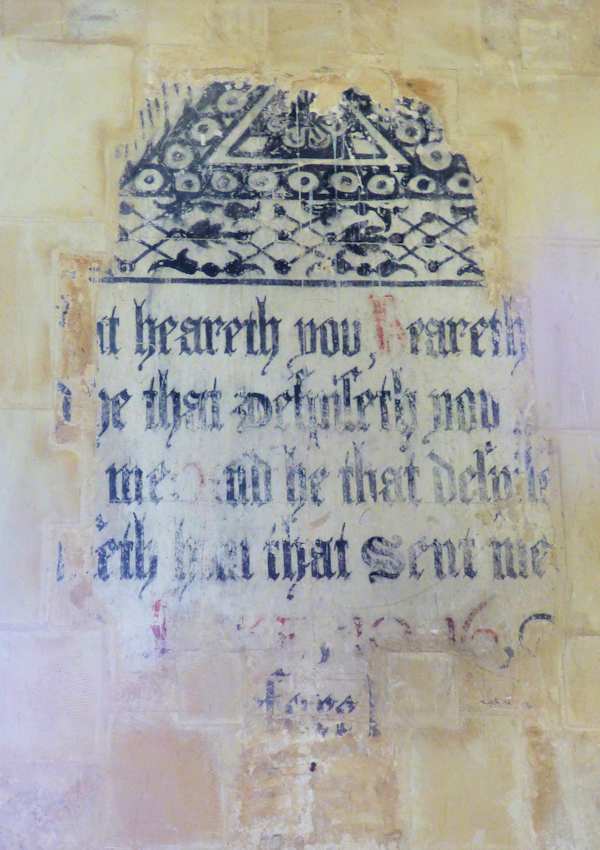 heareth you, heareth
he that Despiseth you
me and he that despise
eth him that Sent me
Luke, 10, 16,